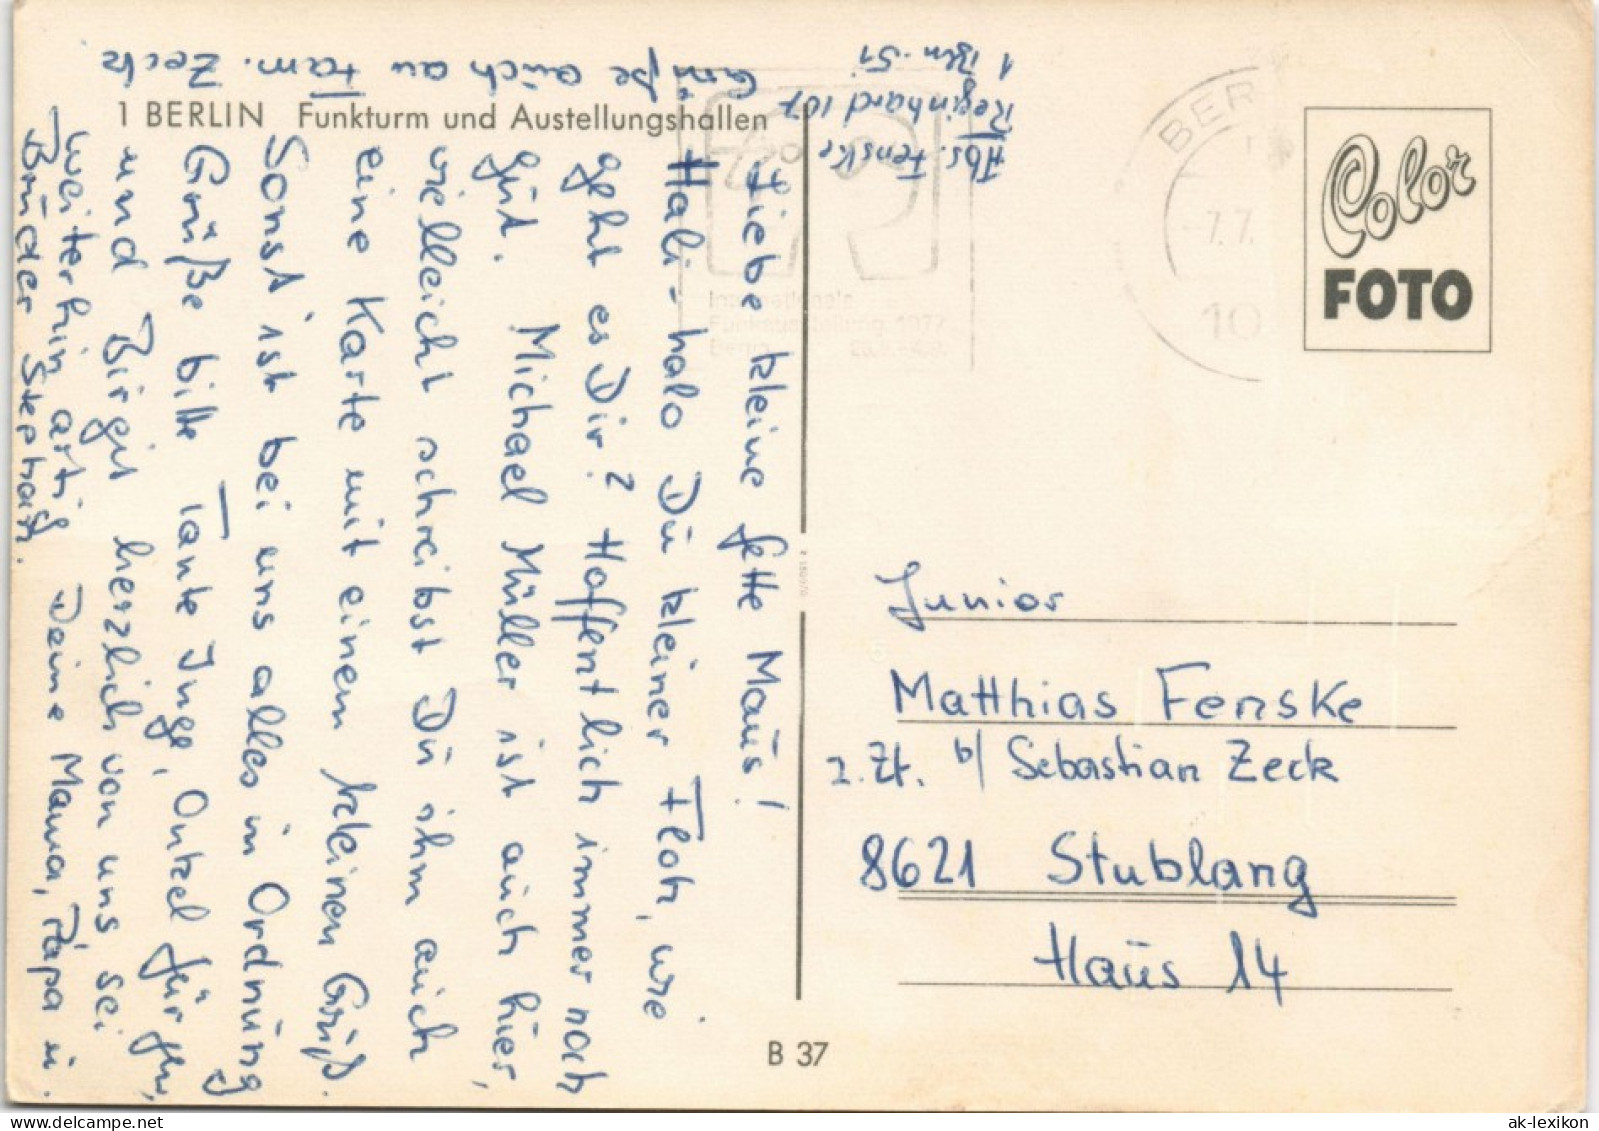 1 BERLIN Funkturm und Austellungshallen
Liebe kleine fette Maus!
Hali-halo Du kleiner Floh, wie
geht es Dir? Hoffentlich immer noch
gut. Michael Müller ist auch hier,
vielleicht schreibst Du ihm auch
eine Karte mit einem kleinen Gruß.
Sonst ist bei uns alles in Ordnung
Grüße bitte Tante Inge, Onkel Jürgen,
und Birgit herzlich von uns sei
weiterhin artig Deine Mama, Papa u.
Bruder Stephan.
Grüße auch an Fam. Zeck
Abs. Fenske
Reginhard 107
1 Bln. 51
BER
7.7.
10
Internationale
Funkausstellung 1977
Berlin
Color
FOTO
Junior
Matthias Fenske
z. Zt. b/ Sebastian Zeck
8621 Stublang
Haus 14
B 37
ak-lexikon